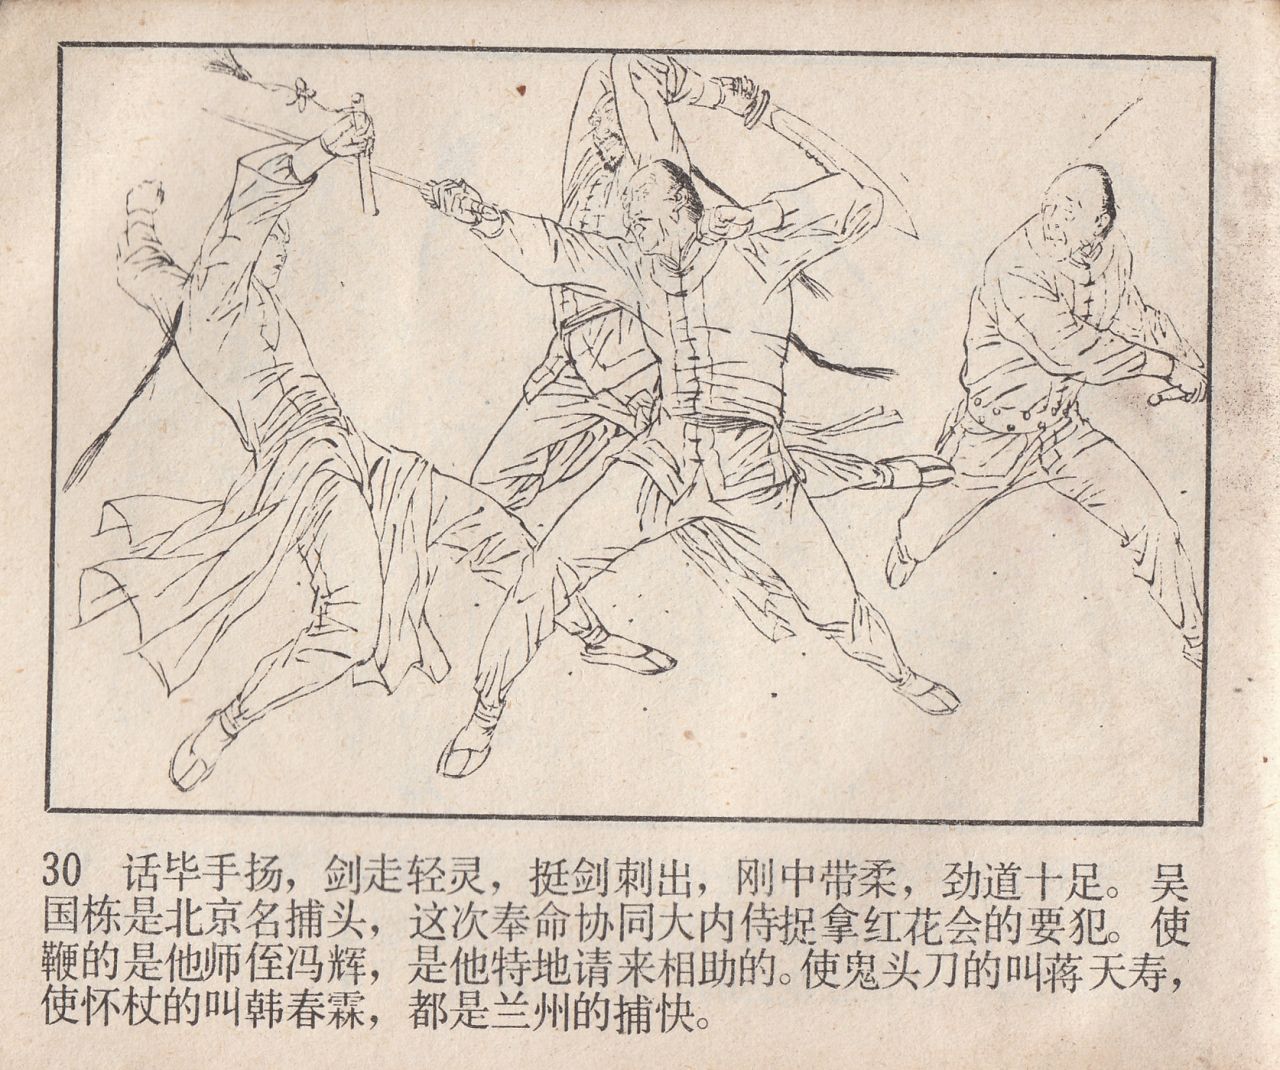 30 话毕手扬，剑走轻灵，挺剑刺出，刚中带柔，劲道十足。吴
国栋是北京名捕头，这次奉命协同大内侍捉拿红花会的要犯。使
鞭的是他师侄冯辉，是他特地请来相助的。使鬼头刀的叫蒋天寿，
使怀杖的叫韩春霖，都是兰州的捕快。